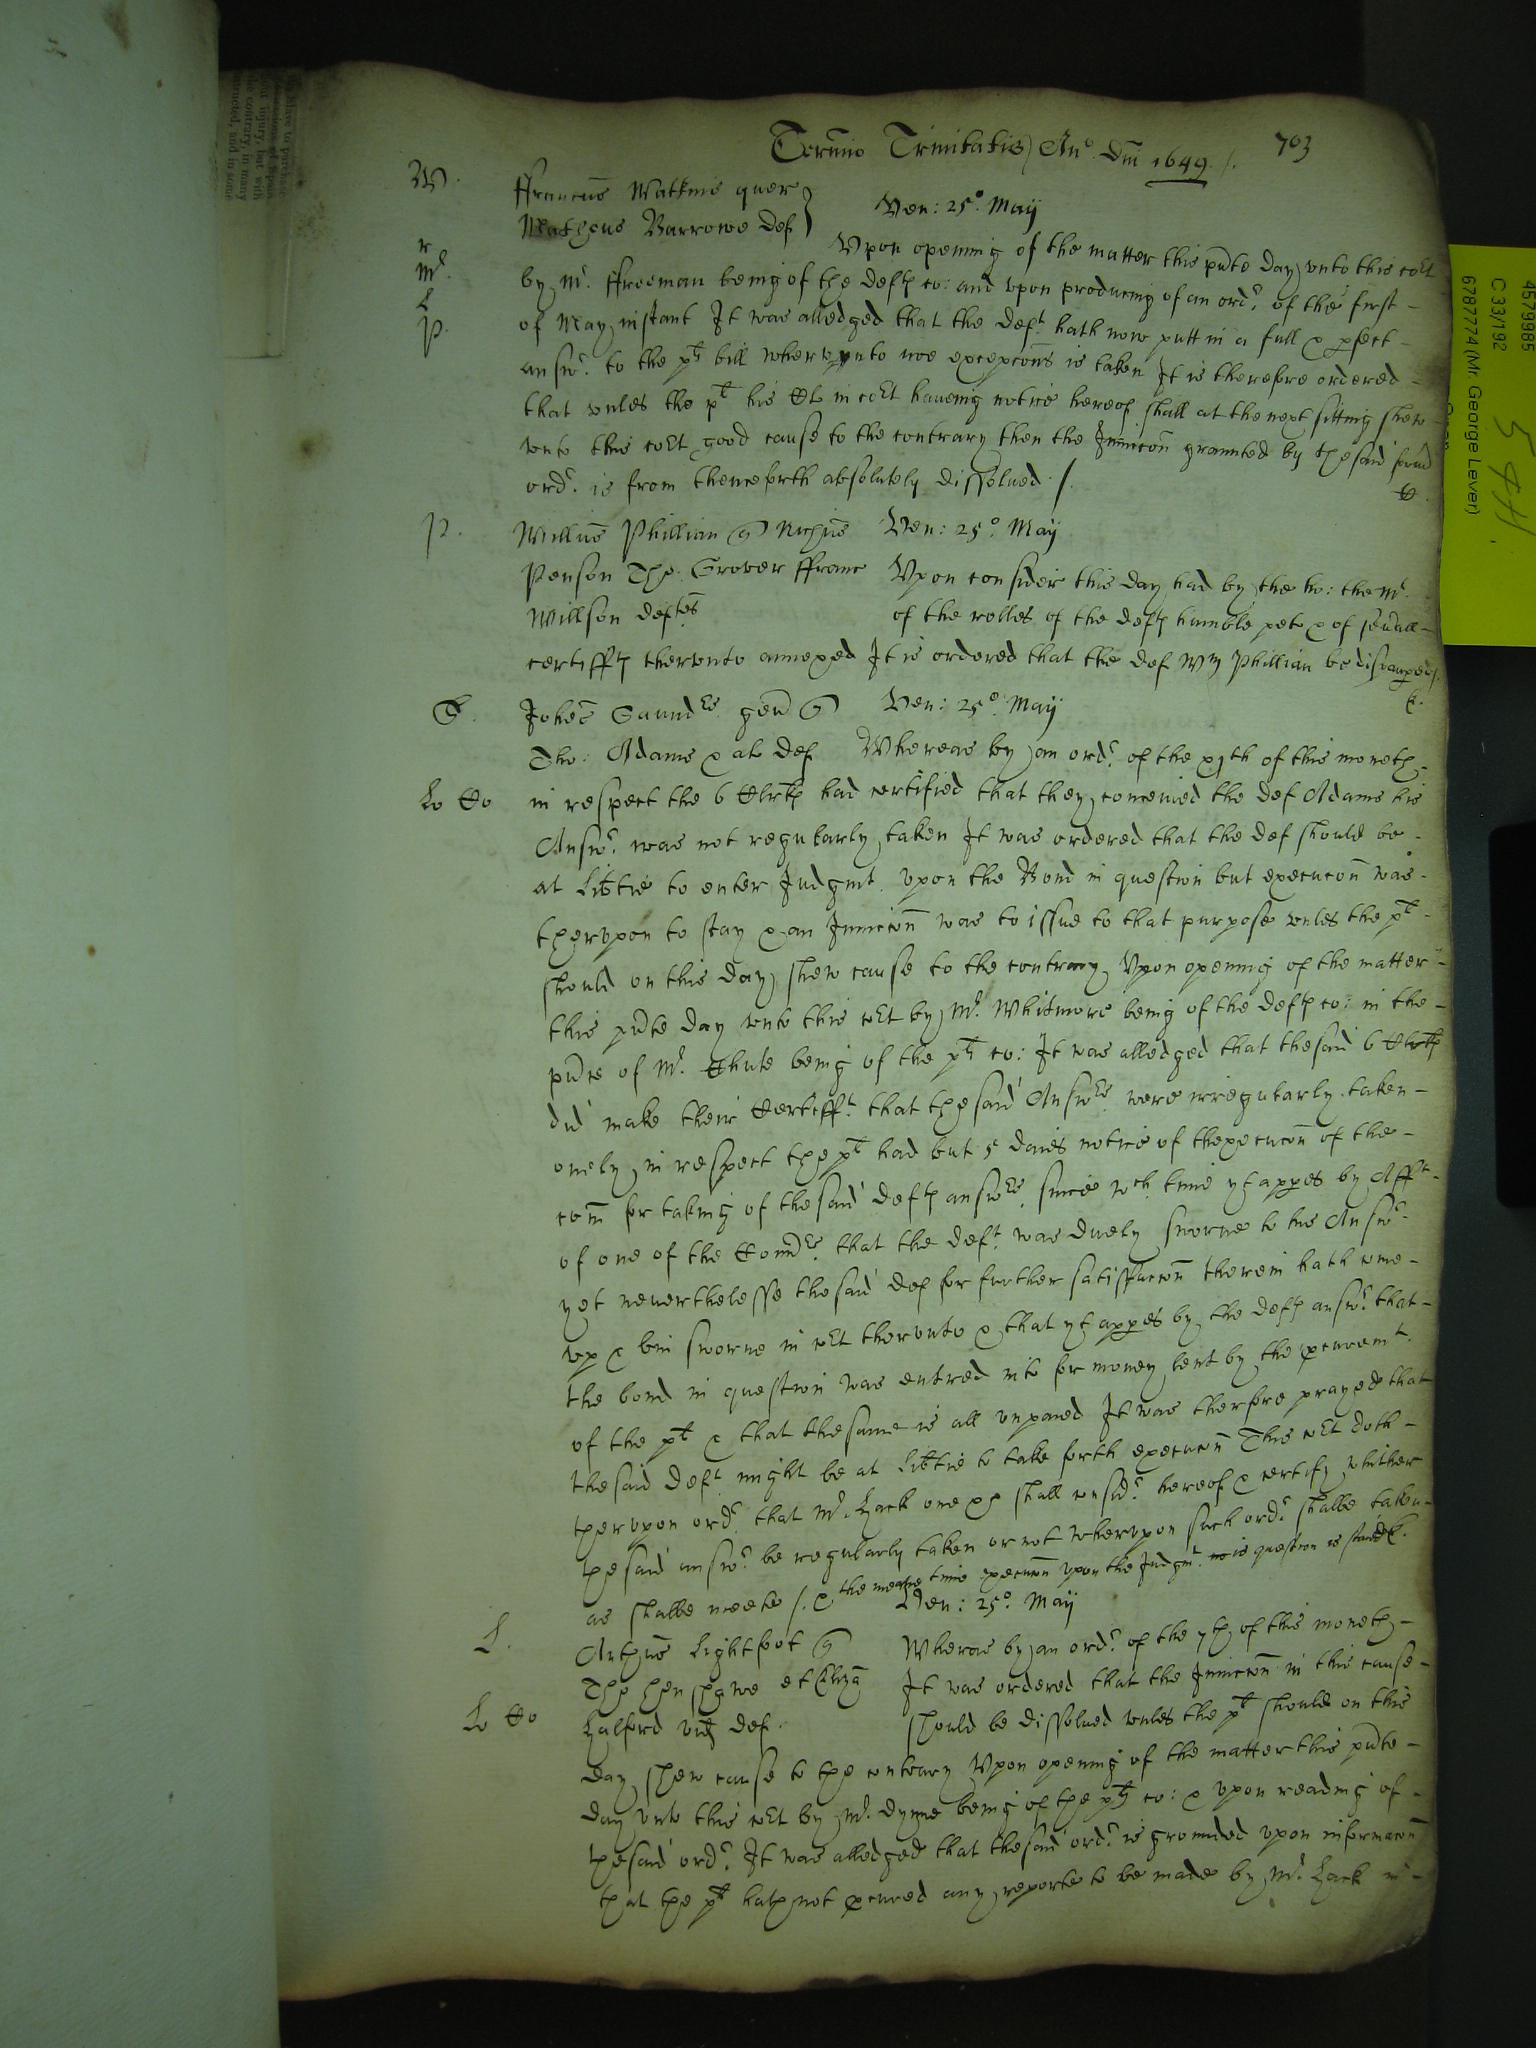 Termio Trinitatis Ano Dm 1649 /. 703
W. ffrancus Watkins quer
Matheus Barrowe def Ven: 25o May
r Upon opening of the matter this pnte day unto this cort
Mr. by Mr ffreeman being of the defts co: and upon producing of an ordr of the first
L of May instant It was alledged that the deft hath now putt in a full & pfect
P. answr to the plts bill wherunto noe excepcons is taken It is therefore ordered
that unles the plt his Cl in cort haveing notice hereof shall at the next sitting shew
unto this cort good cause to the contrary then the Iniuccon graunted by the said former
ordr. is from thenceforth absolutely dissolved ./.
P. Willus Phillian Ven: 25o May
Penson Tho: Grover ffranc Upon consider this day had by the ho: the Mr
Willson deftes of the rolles of the defts humble peto & of sevrall
certiffts therunto annexed It is ordered that the def Wm Phillian be discharged /.
S. Johes Saundrs gen Ven: 25o May
Tho: Adams & al def Whereas by an ordr of the xjth of this moneth
Lo Co in respect the 6 Clrks had certified that they conceived the def Adams his
Answr. was not regularly taken It was ordered that the def should be
at libtie to enter Judgmt upon the Bond in question but execucon was
therupon to stay & an Iniuccon was to issue to that purpose unles the plt
should on this day shew cause to the contrary Upon opening of the matter
this pnte day unto this cort by Mr. Whitmore being of the defts co: in the
pnce of Mr. Chute being of the plts co: It was alledged that the said 6 Clrks
did make their Certifft that the said Answrs were irregularly taken
onely in respect the plt had but 5 daies notice of thexecucon of the
com for taking of the said defts answrs. since wch time yt appes by Afft
of one of the Comrs. that the deft. was duely sworne to his Answr
yet neverthelesse the said def for further satisfaccon therein hath come
up & bin sworne in cort therunto & that yt appes by the defts answr that
the bond in question was entred into for money lent by the procuremt
of the plt & that the same is all unpaied It was therfore prayed that
the said deft might be at libtie to take forth execucon This cort doth
therupon ordr. that Mr. Hack one &c shall considr hereof & certify whither
the said answr be regularly taken or not wherupon such ordr shalbe taken
as shalbe meete /. & the meane time execucon upon the Judgmt in question is staied
Ven: 25o May
L. Arthus Lightfoot Wheras by an ordr of the 7th of this moneth
Tho Henshawe et Eliza It was ordered that the Iniuccon in this cause
Lo Co Halford vid def. should be dissolved unles the plt should on this
day shew cause to the contrary Upon opening of the matter this pnte
day unto this cort by Mr. Dynne being of the plts co: & upon reading of
the said ordr. It was alledged that the said ordr. is grounded upon informacon
that the plt hath not pcured any reporte to be made by Mr. Hack in
4579985
C 33/192
6787774 (Mr. George Lever)